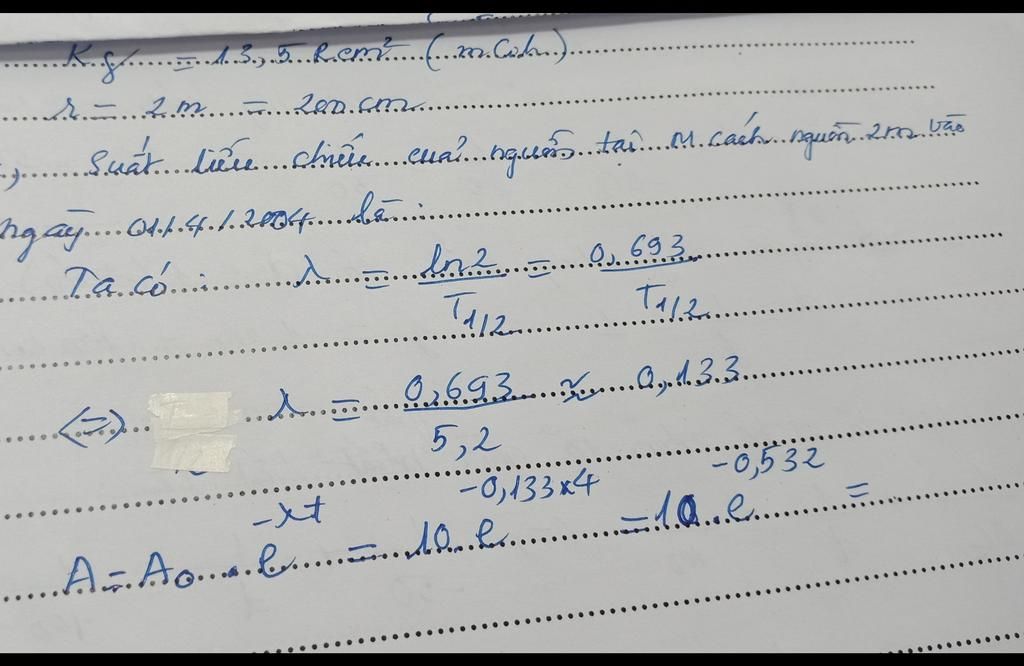 Kγ = 13,5 R.cm² (m.Ci.h)
r = 2m = 200 cm
Suất liều chiếu của nguồn tại M cách nguồn 2m vào
ngày 01/4/2004 là :
Ta có : λ = ln2 / T1/2 = 0,693 / T1/2
<=> λ = 0,693 / 5,2 ≈ 0,133
A = A₀ . e^-λt = 10. e^-0,133x4 = 10. e^-0,532 =